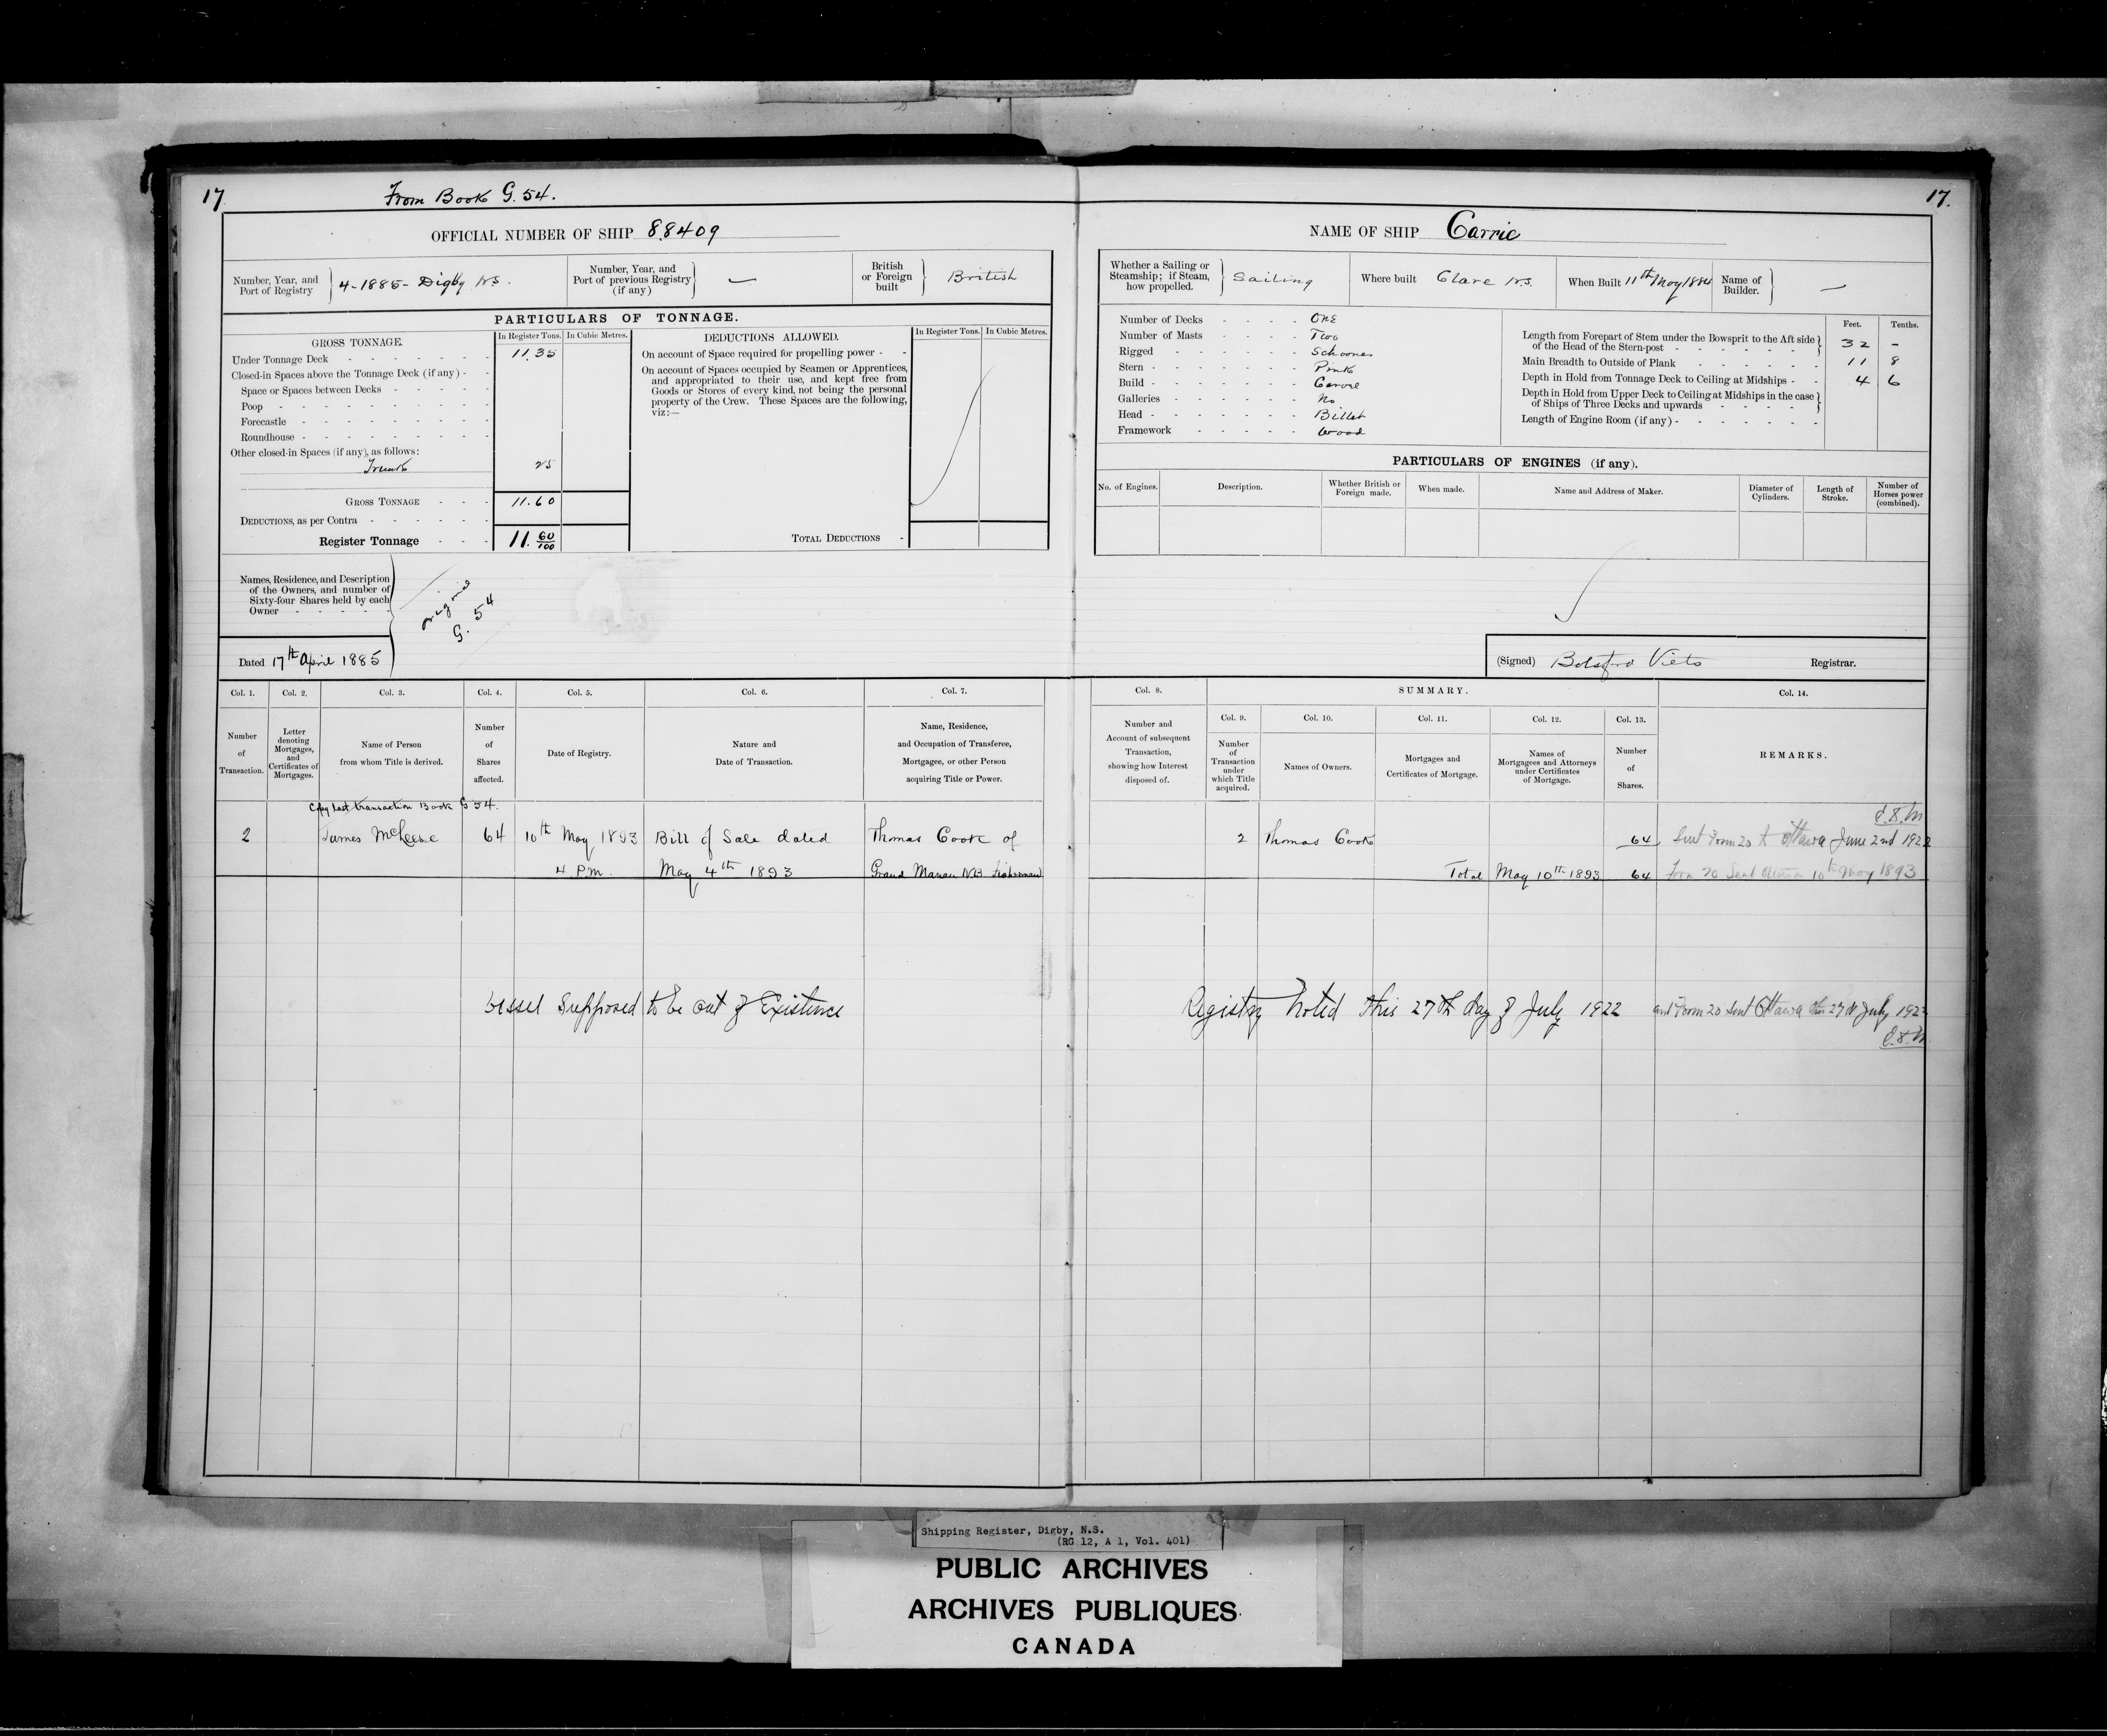 17
From Book G. 54.
OFFICIAL NUMBER OF SHIP 88409
Number, Year, and Port of Registry
4-1885- Digby N.S.
Number, Year, and Port of previous Registry (if any)
—
British or Foreign built
British
PARTICULARS OF TONNAGE.
GROSS TONNAGE.
In Register Tons. In Cubic Metres.
Under Tonnage Deck 11.35
Closed-in Spaces above the Tonnage Deck (if any)
Space or Spaces between Decks
Poop
Forecastle
Roundhouse
Other closed-in Spaces (if any), as follows:
Trunk 25
GROSS TONNAGE 11.60
DEDUCTIONS, as per Contra
Register Tonnage 11. 60/100
DEDUCTIONS ALLOWED.
In Register Tons. In Cubic Metres.
On account of Space required for propelling power
On account of Spaces occupied by Seamen or Apprentices,
and appropriated to their use, and kept free from
Goods or Stores of every kind, not being the personal
property of the Crew. These Spaces are the following,
viz:—
TOTAL DEDUCTIONS
Names, Residence, and Description
of the Owners, and number of
Sixty-four Shares held by each
Owner
G. 54
Dated 17th April 1885
Col. 1. Col. 2. Col. 3. Col. 4. Col. 5. Col. 6. Col. 7.
Number of Transaction.
Letter denoting Mortgages, and Certificates of Mortgages.
Name of Person from whom Title is derived.
Number of Shares affected.
Date of Registry.
Nature and Date of Transaction.
Name, Residence, and Occupation of Transferee, Mortgagee, or other Person acquiring Title or Power.
Copy last transaction Book G 54.
2 James McLeese 64 10th May 1893 Bill of Sale dated Thomas Cook of
4 P.M. May 4th 1893 Grand Manan NB Fisherman
Vessel Supposed to be out of Existence
17.
NAME OF SHIP Carrie
Whether a Sailing or Steamship; if Steam, how propelled.
Sailing
Where built Clare N.S.
When Built 11th May 1884
Name of Builder.
—
Number of Decks One
Number of Masts Two
Rigged Schooner
Stern Pink
Build Carvel
Galleries No
Head Billet
Framework Wood
Feet. Tenths.
Length from Forepart of Stem under the Bowsprit to the Aft side
of the Head of the Stern-post 32 -
Main Breadth to Outside of Plank 11 8
Depth in Hold from Tonnage Deck to Ceiling at Midships 4 6
Depth in Hold from Upper Deck to Ceiling at Midships in the case
of Ships of Three Decks and upwards
Length of Engine Room (if any)
PARTICULARS OF ENGINES (if any).
No. of Engines.
Description.
Whether British or Foreign made.
When made.
Name and Address of Maker.
Diameter of Cylinders.
Length of Stroke.
Number of Horses power (combined).
(Signed) Botsford Viets Registrar.
Col. 8. SUMMARY. Col. 14.
Col. 9. Col. 10. Col. 11. Col. 12. Col. 13.
Number and Account of subsequent Transaction, showing how Interest disposed of.
Number of Transaction under which Title acquired.
Names of Owners.
Mortgages and Certificates of Mortgage.
Names of Mortgagees and Attorneys under Certificates of Mortgage.
Number of Shares.
REMARKS.
2 Thomas Cook 64 Sent Form 20 to Ottawa June 2nd 1922
Total May 10th 1893 64 Form 20 Sent Ottawa 10th May 1893
Registry Noted this 27th day of July 1922 and Form 20 Sent Ottawa 27th July 1922
Shipping Register, Digby, N.S.
(RG 12, A 1, Vol. 401)
PUBLIC ARCHIVES
ARCHIVES PUBLIQUES
CANADA